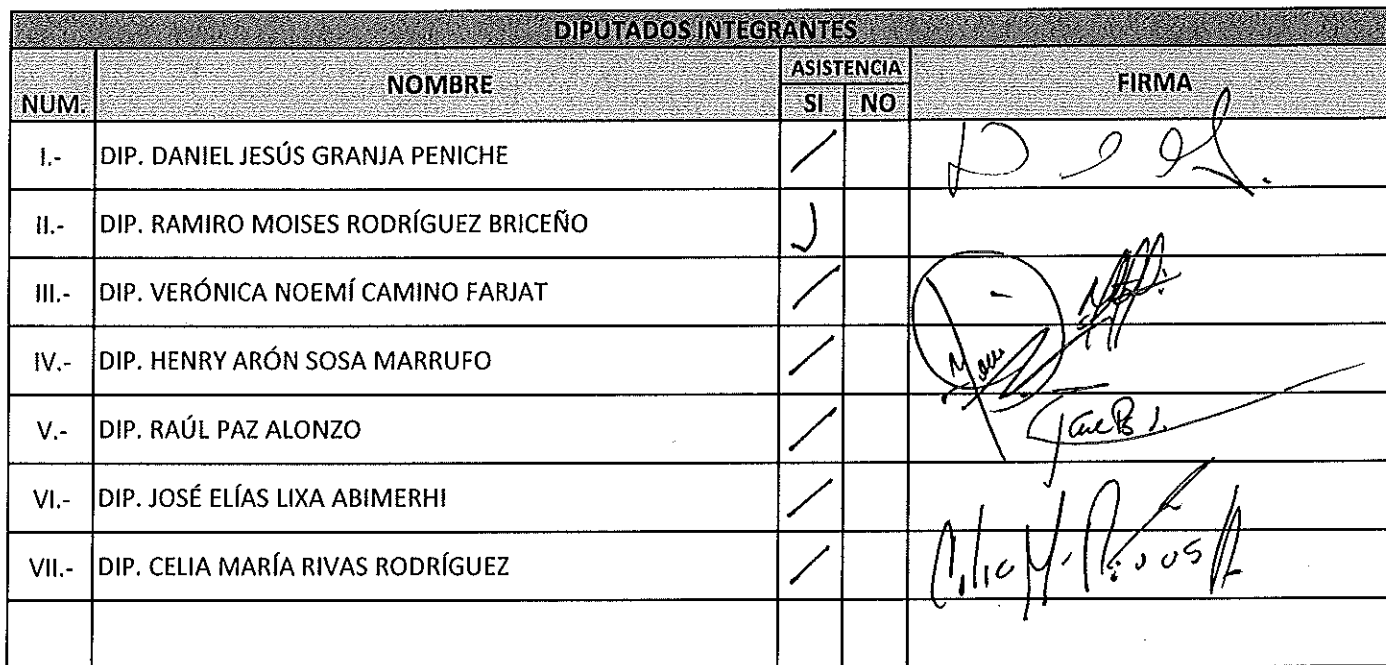 DIPUTADOS INTEGRANTES
NUM. NOMBRE ASISTENCIA FIRMA
SI NO
I.- DIP. DANIEL JESÚS GRANJA PENICHE
II.- DIP. RAMIRO MOISES RODRÍGUEZ BRICEÑO
III.- DIP. VERÓNICA NOEMÍ CAMINO FARJAT
IV.- DIP. HENRY ARÓN SOSA MARRUFO
V.- DIP. RAÚL PAZ ALONZO
VI.- DIP. JOSÉ ELÍAS LIXA ABIMERHI
VII.- DIP. CELIA MARÍA RIVAS RODRÍGUEZ